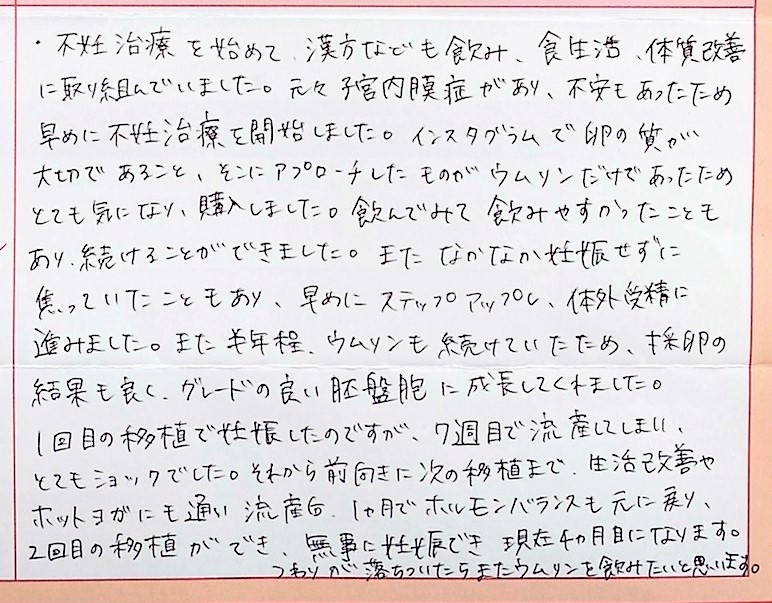 ・不妊治療を始めて、漢方なども飲み、食生活、体質改善
に取り組んでいました。元々子宮内膜症があり、不安もあったため
早めに不妊治療を開始しました。インスタグラムで卵の質が
大切であること、そこにアプローチしたものがウムリンだけであったため
とても気になり、購入しました。飲んでみて飲みやすかったことも
あり、続けることができました。またなかなか妊娠せずに
焦っていたこともあり、早めにステップアップし、体外受精に
進みました。また半年程、ウムリンも続けていたため、採卵の
結果も良く、グレードの良い胚盤胞に成長してくれました。
1回目の移植で妊娠したのですが、7週目で流産してしまい、
とてもショックでした。それから前向きに次の移植まで、生活改善や
ホットヨガにも通い流産后、1ヶ月でホルモンバランスも元に戻り、
2回目の移植ができ、無事に妊娠でき現在4カ月目になります。
つわりが落ちついたらまたウムリンを飲みたいと思います。